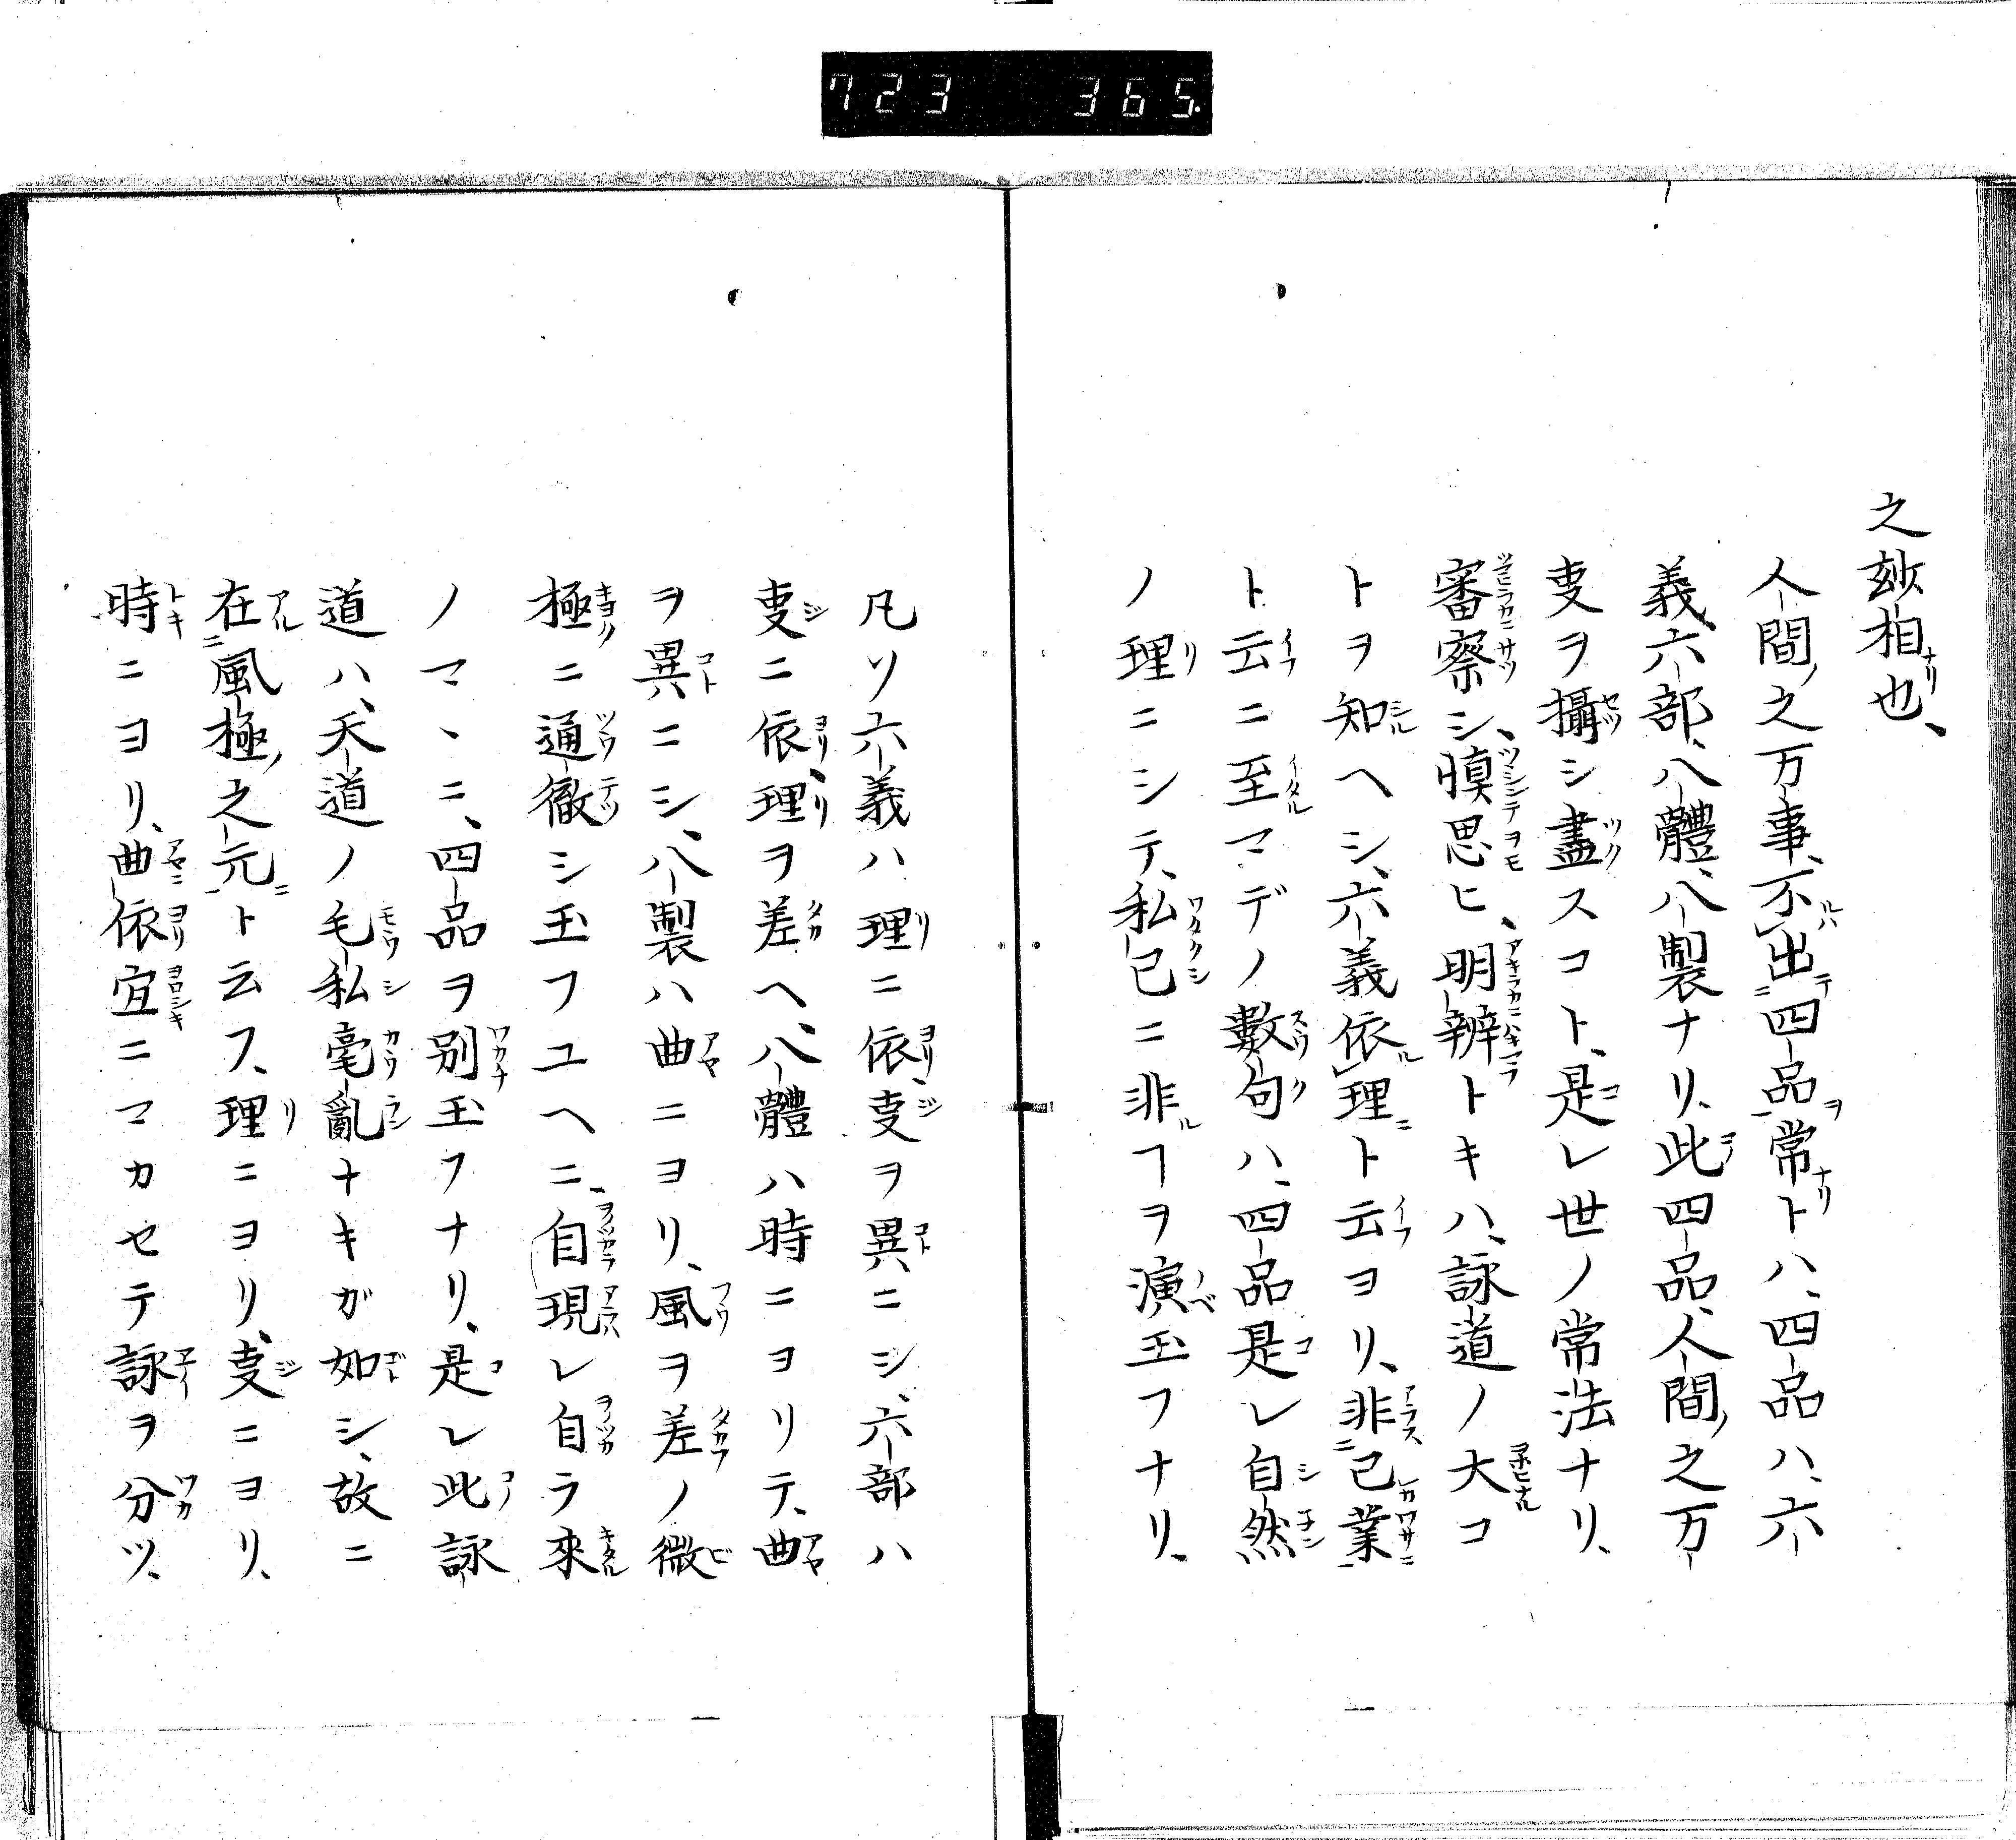 723 365
之玅相也、
人間之万事、不出四品常トハ、四品ハ、六
義六部、八體、八製ナリ、此四品、人間之万
叓ヲ攝シ盡スコト、是レ世ノ常法ナリ、
審察シ、慎思ヒ、明辨トキハ、詠道ノ大コ
トヲ知ヘシ、六義依理ト云ヨリ、非己業
ト云ニ至マデノ數句ハ、四品是レ自然
ノ理ニシテ、私己ニ非ヿヲ演玉フナリ、
凡ソ六義ハ理ニ依叓ヲ異ニシ、六部ハ
叓ニ依、理ヲ差ヘ、八體ハ時ニヨリテ、曲
ヲ異ニシ、八製ハ曲ニヨリ、風ヲ差ノ微
極ニ通徹シ玉フユヘニ、自現レ自ラ來
ノマヽニ、四品ヲ別玉フナリ、是レ此詠
道ハ、天道ノ毛私毫亂ナキガ如シ、故ニ
在風極之元ト云フ、理ニヨリ、叓ニヨリ、
時ニヨリ、曲依宜ニマカセテ詠ヲ分ツ、